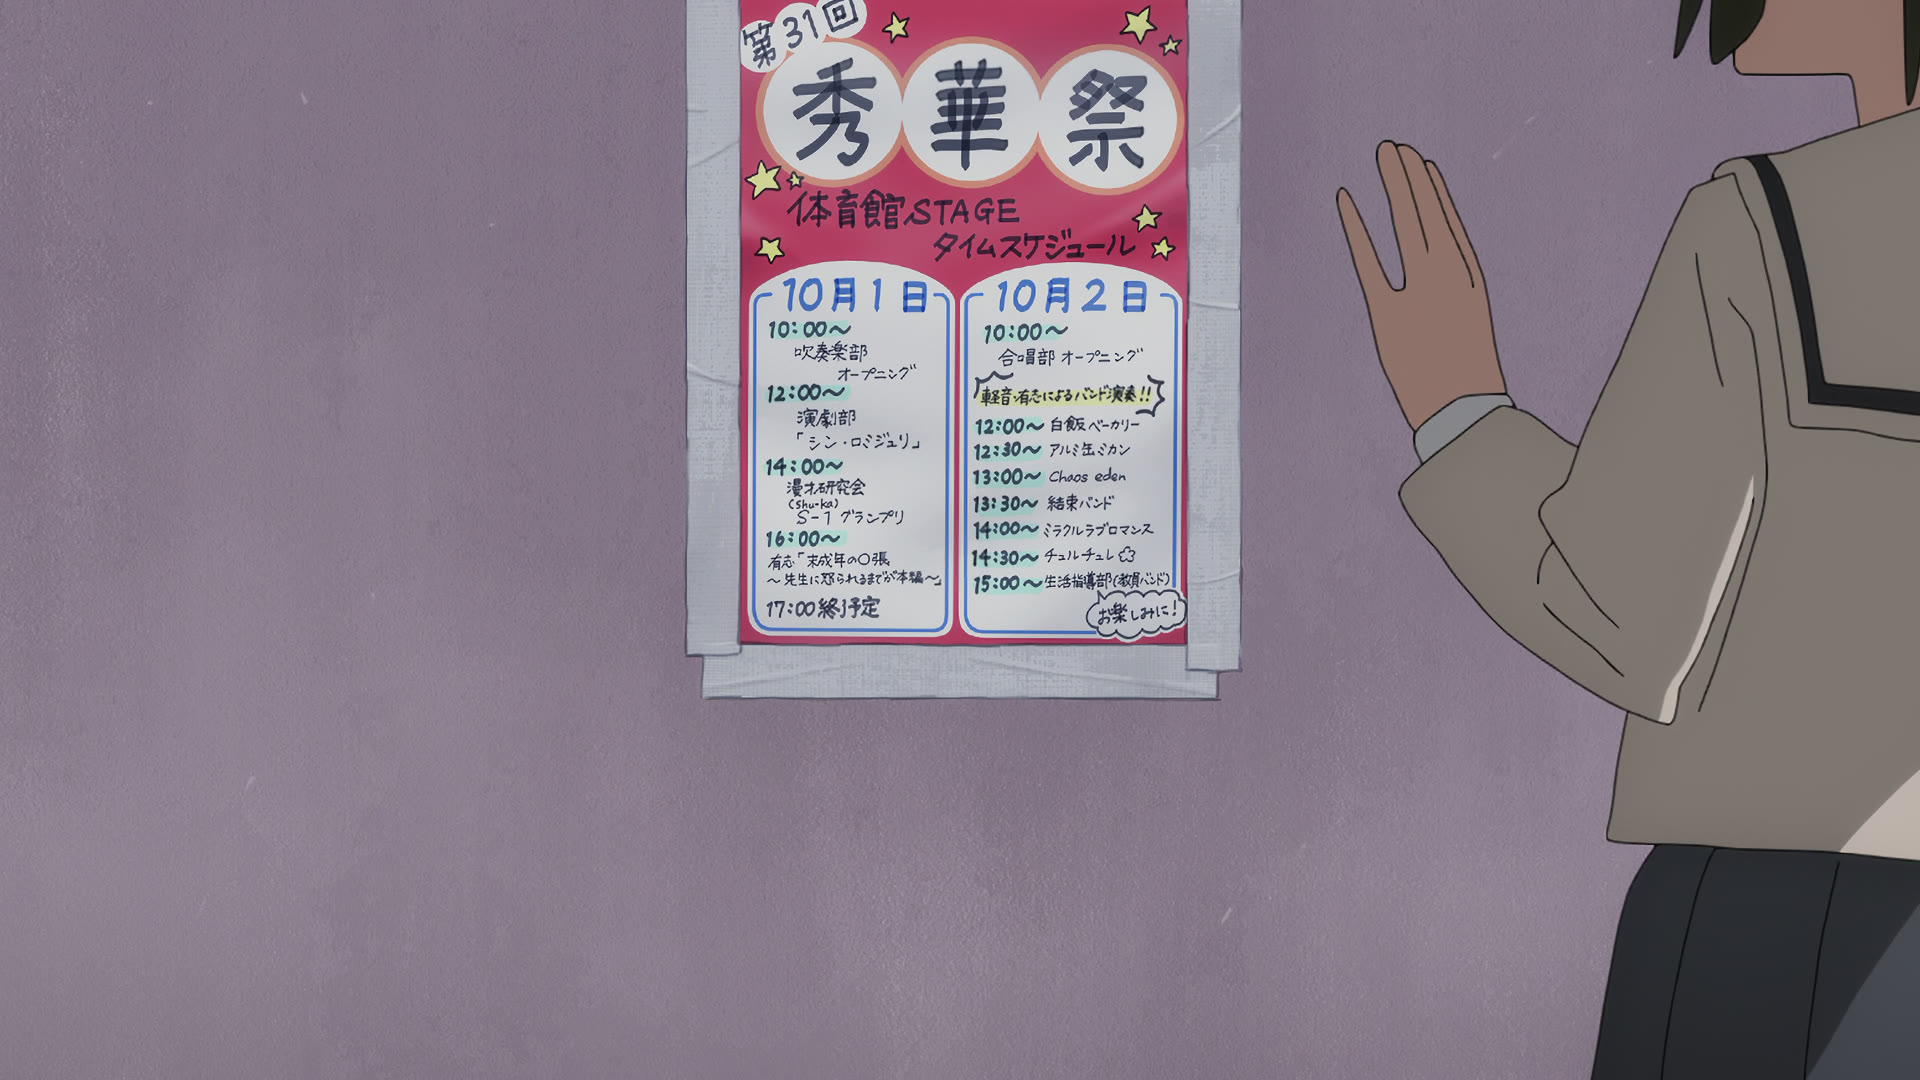 第31回
秀華祭
体育館STAGE
タイムスケジュール
10月1日
10:00〜
吹奏楽部
オープニング
12:00〜
演劇部
「シン・ロミジュリ」
14:00〜
漫才研究会
(Shu-ka)
S-1グランプリ
16:00〜
有志「未成年の〇張
〜先生に怒られるまでが本編〜」
17:00終了予定
10月2日
10:00〜
合唱部 オープニング
軽音・有志によるバンド演奏!!
12:00〜 白飯ベーカリー
12:30〜 アルミ缶ミカン
13:00〜 Chaos eden
13:30〜 結束バンド
14:00〜 ミラクルラブロマンス
14:30〜 チュルチュレ
15:00〜 生活指導部(教員バンド)
お楽しみに!